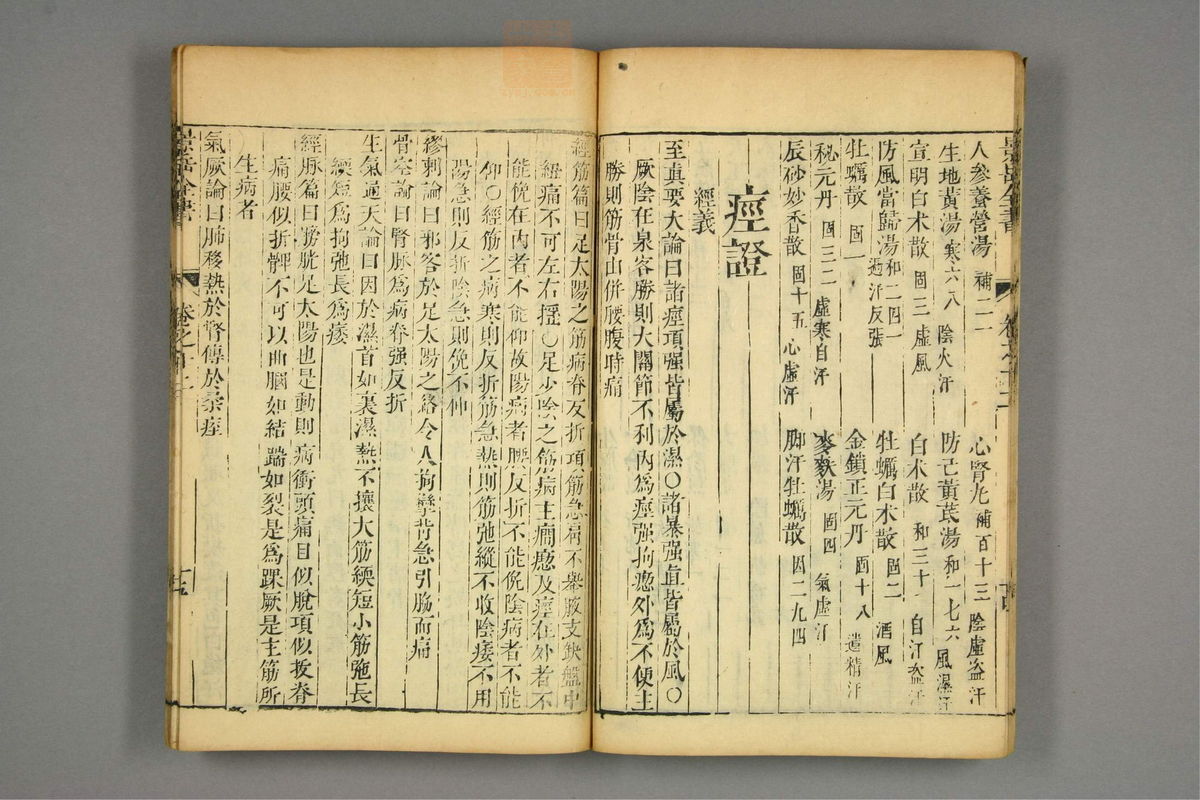 人參養營湯 補二一
心腎丸 補百十三 陰虛盜汗
生地黃湯 寒六八 陰火汗
防己黃芪湯 和一七六 風濕汗
宣明白术散 固三 虛風
白术散 和三十 自汗盜汗
防風當歸湯 和二四一 過汗反張
牡蠣白术散 固二 酒風
牡蠣散 固一
金鎖正元丹 固十八 遺精汗
秘元丹 固三二 虛寒自汗
麥麩湯 固四 氣虛汗
辰砂妙香散 固十五 心虛汗
脚汗牡蠣散 因二九四
痙證
經義
至真要大論曰諸痙項强皆屬於濕○諸暴强直皆屬於風○
厥陰在泉客勝則大關節不利内爲痙强拘瘛外爲不便主
勝則筋骨繇併腰腹時痛
經筋篇曰足太陽之筋病脊反折項筋急肩不舉腋支缺盆中
紐痛不可左右揺○足少陰之筋病主癎瘛及痙在外者不
能俛在内者不能仰故陽病者腰反折不能俛陰病者不能
仰○經筋之病寒則反折筋急熱則筋弛縱不收陰痿不用
陽急則反折陰急則俛不伸
繆刺論曰邪客於足太陽之絡令人拘攣背急引脇而痛
骨空論曰督脉爲病脊强反折
生氣通天論曰因於濕首如裹濕熱不攘大筋緛短小筋弛長
緛短爲拘弛長爲痿
經脉篇曰膀胱足太陽也是動則病衝頭痛目似脫項似拔脊
痛腰似折髀不可以曲膕如結踹如裂是爲踝厥是主筋所
生病者
氣厥論曰肺移熱於腎傳於柔痓
景岳全書